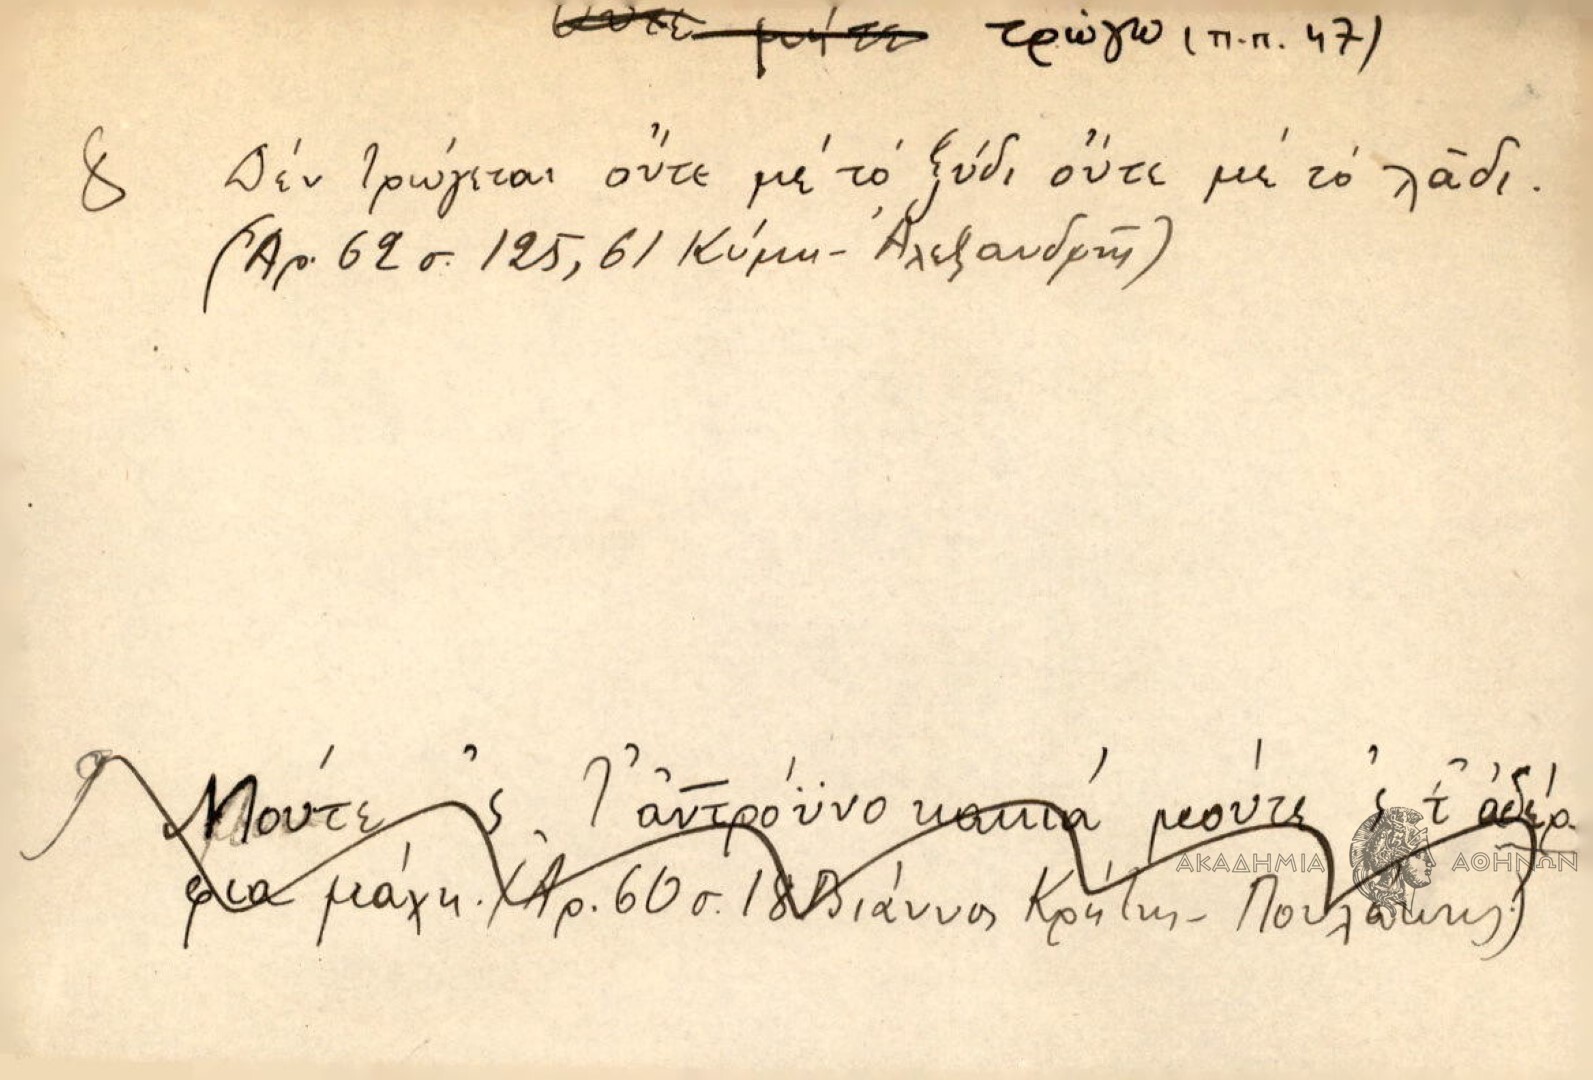 οὔτε μήτε τρώγω (π.π. 47)
8 Δέν τρώγεται οὔτε μέ τό ξύδι οὔτε μέ τό λᾶδι.
(Ἀρ. 62 σ. 125, 61 Κύμη - Ἀλεξανδρῆ)
9 Μούτε ς τ' ἀντρόϋνο κακιά μούτε ς τ' ἀδέρ
φια μάχη. (Ἀρ. 60 σ. 18 Βιάννος Κρήτης -
ΑΚΑΔΗΜΙΑ ΑΘΗΝΩΝ